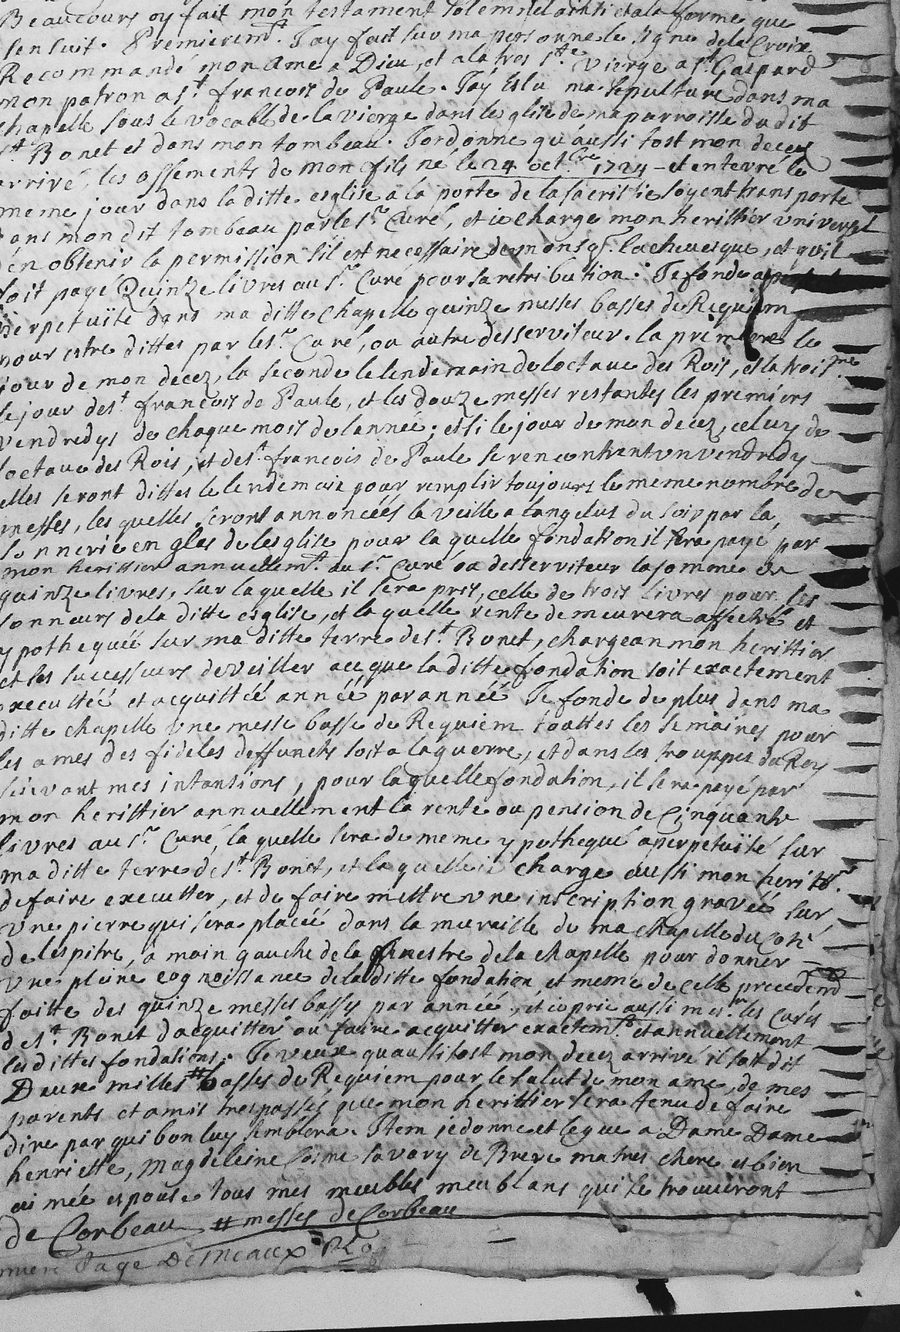 Beaucours oy fait mon testament solemnel ainsi et a la forme que
sensuit. Premierem.t Jay fait sur ma personne le signe de la Croix
Recommandé mon ame a Dieu, et a la tres s.te Vierge a s.t Gaspard
mon patron a s.t francois de Paule. Jay Eslu ma sepulture dans ma
chapelle sous le vocable de la vierge dans leglise de ma parroisse du dit
s.t Bonet et dans mon tombeau. Jordonne quaussi tost mon decez
arrivé, les ossements de mon fils né le 24 oct.bre 1724 et enterré le
meme jour dans la ditte esglise a la porte de la sacristie soyent transporté
dans mon dit tombeau par le s.r Curé, et ie charge mon herittier universel
den obtenir la permission sil est necessaire de mons.gr lacheuesque, et quil
soit payé Quinze livres au s.r Curé pour sa retribution. Je fonde a
perpetuité dans ma ditte Chapelle quinze messes basses de Requiem
pour estre dittes par le s.r Curé, ou autre desserviteur. la premiere le
jour de mon decez, la seconde le lendemain de loctave des Rois, et la troi.me
le jour de s.t francois de Paule, et les douze messes restantes les premiers
vendredys de chaque mois de lannee, et si le jour de mon decez, celuy de
loctave des Rois, et de s.t francois de Paule se rencontrent un vendredy
elles seront dittes le lendemain pour remplir toujours le meme nombre de
messes, les quelles seront annoncées la veille a langelus du soir par la
sonnerie en glas de leglise pour la quelle fondation il sera payé par
mon herittier annuellem.t au s.r Curé ou desserviteur la somme de
quinze livres, sur la quelle il sera pris, celle de trois livres pour les
sonneurs de la ditte esglise, et la quelle rente demeurera affectée et
ypothequée sur ma ditte terre de s.t Bonet, chargean mon herittier
et les successeurs de veiller a ce que la ditte fondation soit exactement
executtée et acquittée année par année Je fonde de plus dans ma
ditte chapelle une messe basse de Requiem touttes les semaines pour
les ames des fideles deffuncts soit a la guerre, et dans les trouppes du Roy
suivant mes intantions, pour la quelle fondation, il sera payé par
mon herittier annuellement la rente ou pension de Cinquante
livres au s.r Curé, la quelle sera de meme ypothequé a perpetuité sur
ma ditte terre de s.t Bonet, et la quelle ie charge aussi mon heritt.r
de faire executter, et de faire mettre une inscription gravée sur
une pierre qui sera placée dans la muraille de ma chapelle du Coté
de lespitre, a main gauche de la fenestre de la chapelle pour donner
une pleine cognoissance de la ditte fondation et meme de celle precedend
faitte des quinze messes basses par année, et ie prie aussi mes.rs les Curés
de s.t Bonet dacquitter ou faire acquitter exactem.t et annuellement
les dittes fondations. Je veux quaussi tost mon decez arrivé il soit dit
Deux milles # basses de Requiem pour le salut de mon ame, de mes
parents et amis trespassés que mon herittier sera tenu de faire
dire par qui bon luy semblera. Item je donne et legue a Dame Dame
henriette, Magdeleine Cosme Savary de Breve ma tres chere et bien
aimée espouse tous mes meubles meublans qui se trouveront
de Corbeau # messes de Corbeau
page